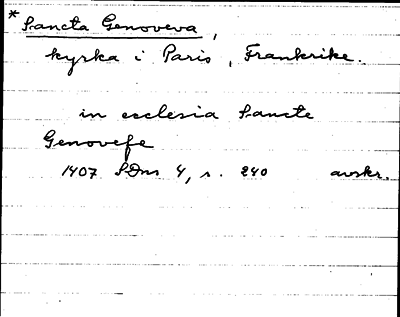 * Sancta Genoveva,
kyrka i Paris, Frankrike.
in ecclesia Sancte
Genovefe
1407 SDns 4, s. 240 avskr.